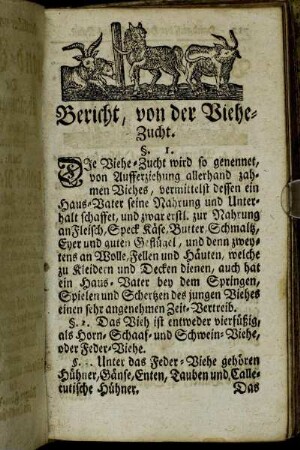 Bericht, von der Viehe-
Zucht.
§. 1.
DIe Viehe-Zucht wird so genennet,
von Aufferziehung allerhand zah-
men Viehes, vermittelst dessen ein
Haus-Vater seine Nahrung und Unter-
halt schaffet, und zwar erstl. zur Nahrung
an Fleisch, Speck Käse, Butter, Schmaltz,
Eyer und guten Geflügel, und denn zwey-
tens an Wolle, Fellen und Häuten, welche
zu Kleidern und Decken dienen, auch hat
ein Haus-Vater bey dem Springen,
Spielen und Schertzen des jungen Viehes
einen sehr angenehmen Zeit-Vertreib.
§. 2. Das Vieh ist entweder vierfüßig,
als Horn- Schaaf- und Schwein-Viehe,
oder Feder-Viehe.
§. 3. Unter das Feder-Viehe gehören
Hühner, Gänse, Enten, Tauben und Calle-
cutische Hühner. Das